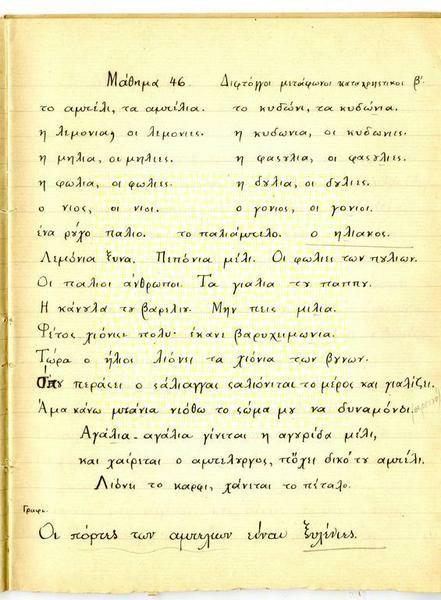 Μάθημα 46. Διφτόγγοι μετάφωνοι καταχρηστικοι β'.
το αμπέλι, τα αμπέλια. το κυδώνι, τα κυδώνια.
η λεμονια, οι λεμονιες. η κυδωνια, οι κυδωνιες.
η μηλια, οι μηλιες. η φασȣλια, οι φασȣλιες.
η φωλια, οι φωλιες. η δȣλια, οι δȣλιες.
ο νιος, οι νιοι. ο γονιος, οι γονιοι.
ένα ρȣχο παλιο. το παλιάμπελο. ο ηλιακος.
Λεμόνια ξυνα. Πεπόνια μέλι. Οι φωλιες των πȣλιων.
Οι παλιοι άνθρωποι. Τα γιαλια τȣ παππȣ.
Η κάνȣλα τȣ βαρελιȣ. Μην πεις μιλια.
Φέτος χιόνισε πολυ· έκανε βαρυχειμωνια.
Τώρα ο ήλιος λιόνει τα χιόνια των βȣνων.
Όπȣ περάσει ο σάλιαγγας σαλιόνεται το μέρος και γιαλίζει.
Άμα κάνω μπάνια νιόθω το σώμα μȣ να δυναμόνει.
Αγάλια-αγάλια γίνεται η αγȣρίδα μέλι,
και χαίρεται ο αμπελȣργος, πὄχει δικό τȣ αμπέλι.
Λιόνει το καρφι, χάνεται το πέταλο.
Γραφε.
Οι πόρτες των αμπελιων είναι ξυλένιες.